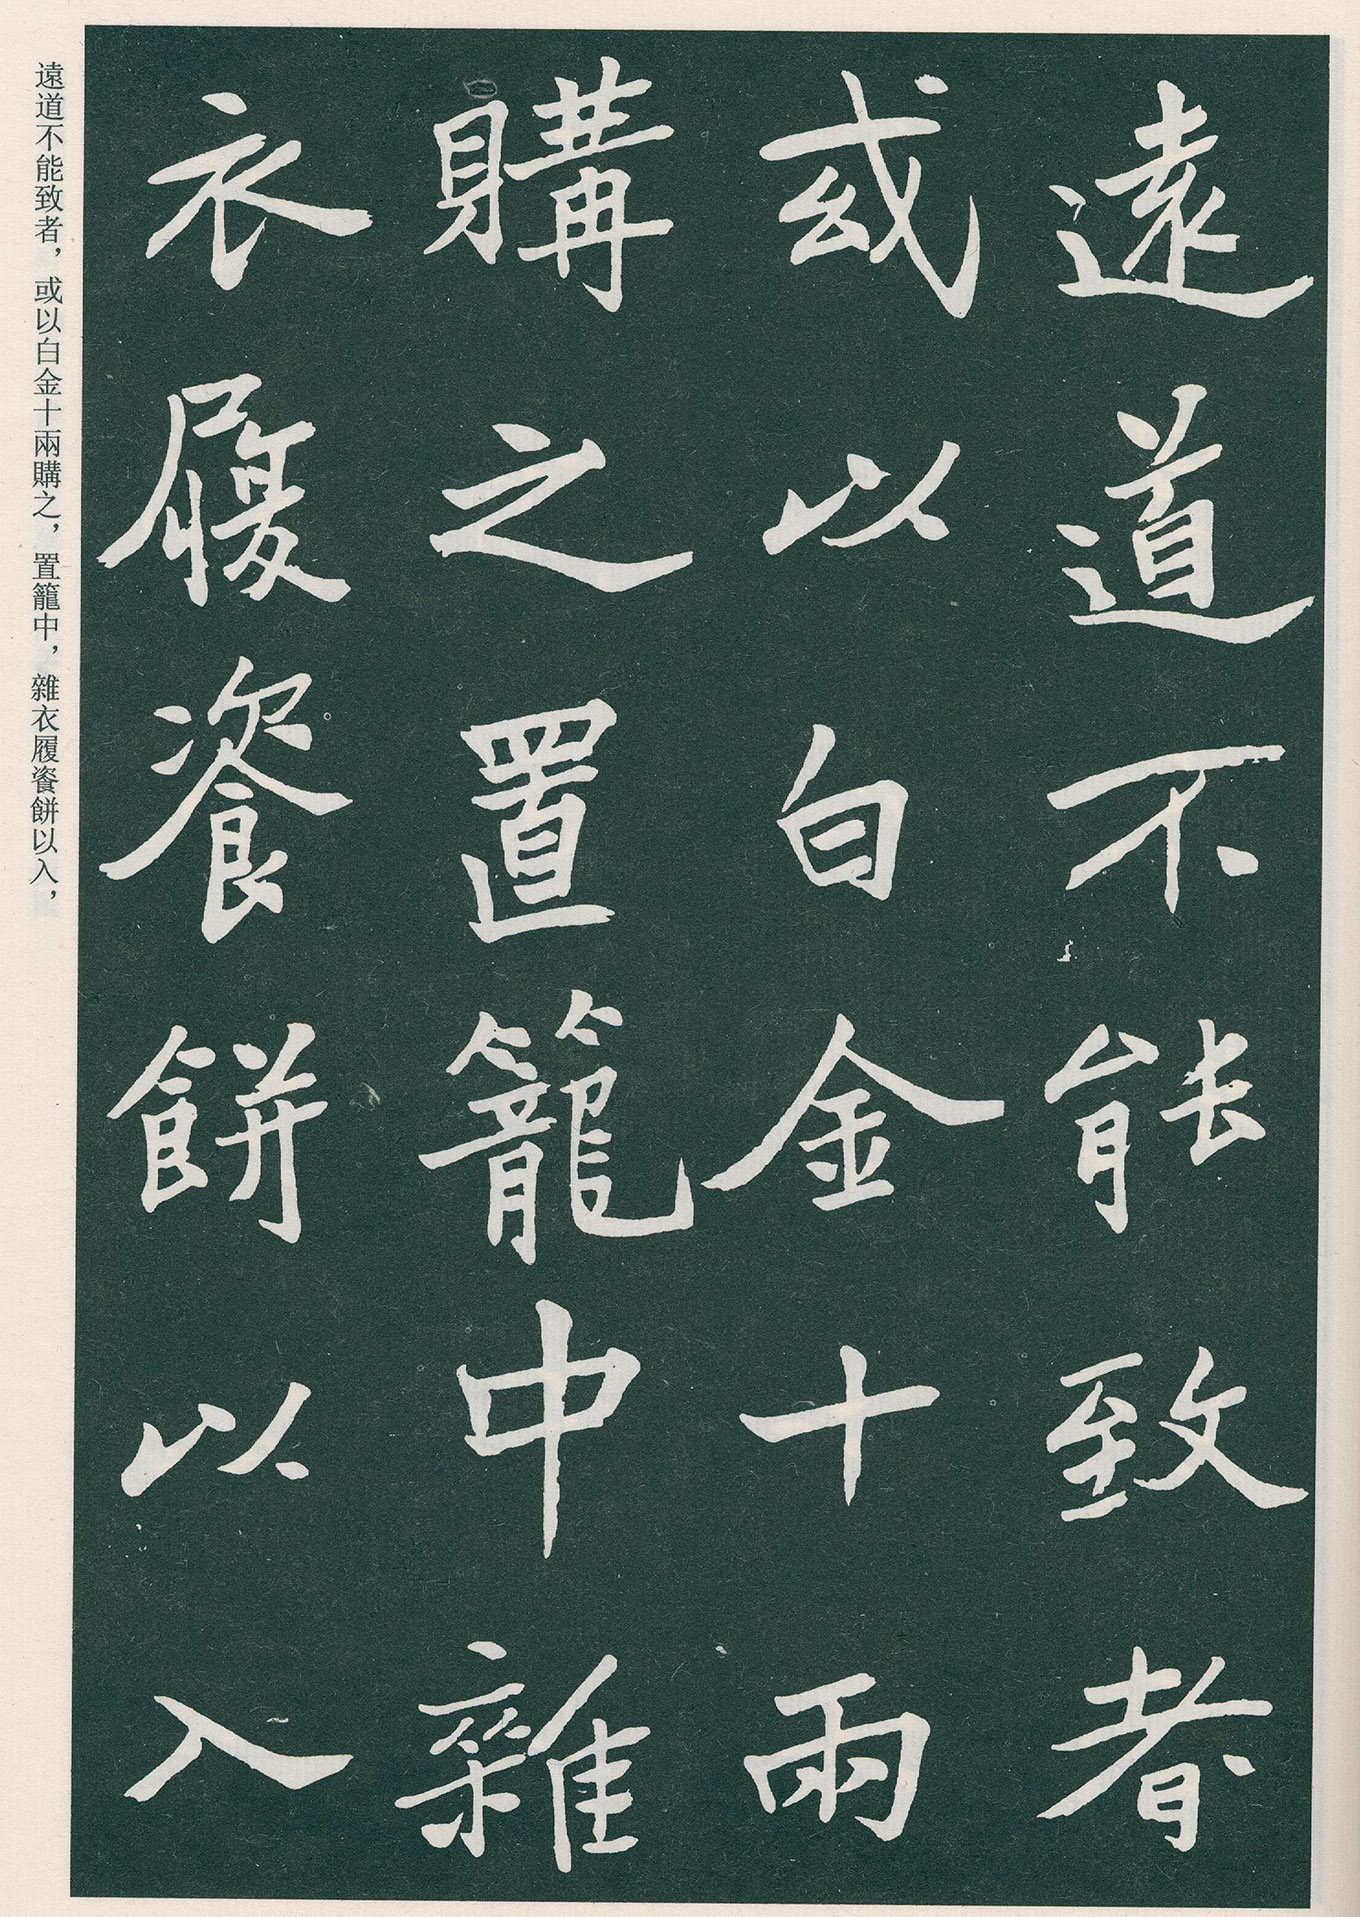 遠道不能致者
或以白金十兩
購之置籠中雜
衣履餈餅以入
遠道不能致者，或以白金十兩購之，置籠中，雜衣履餈餅以入，